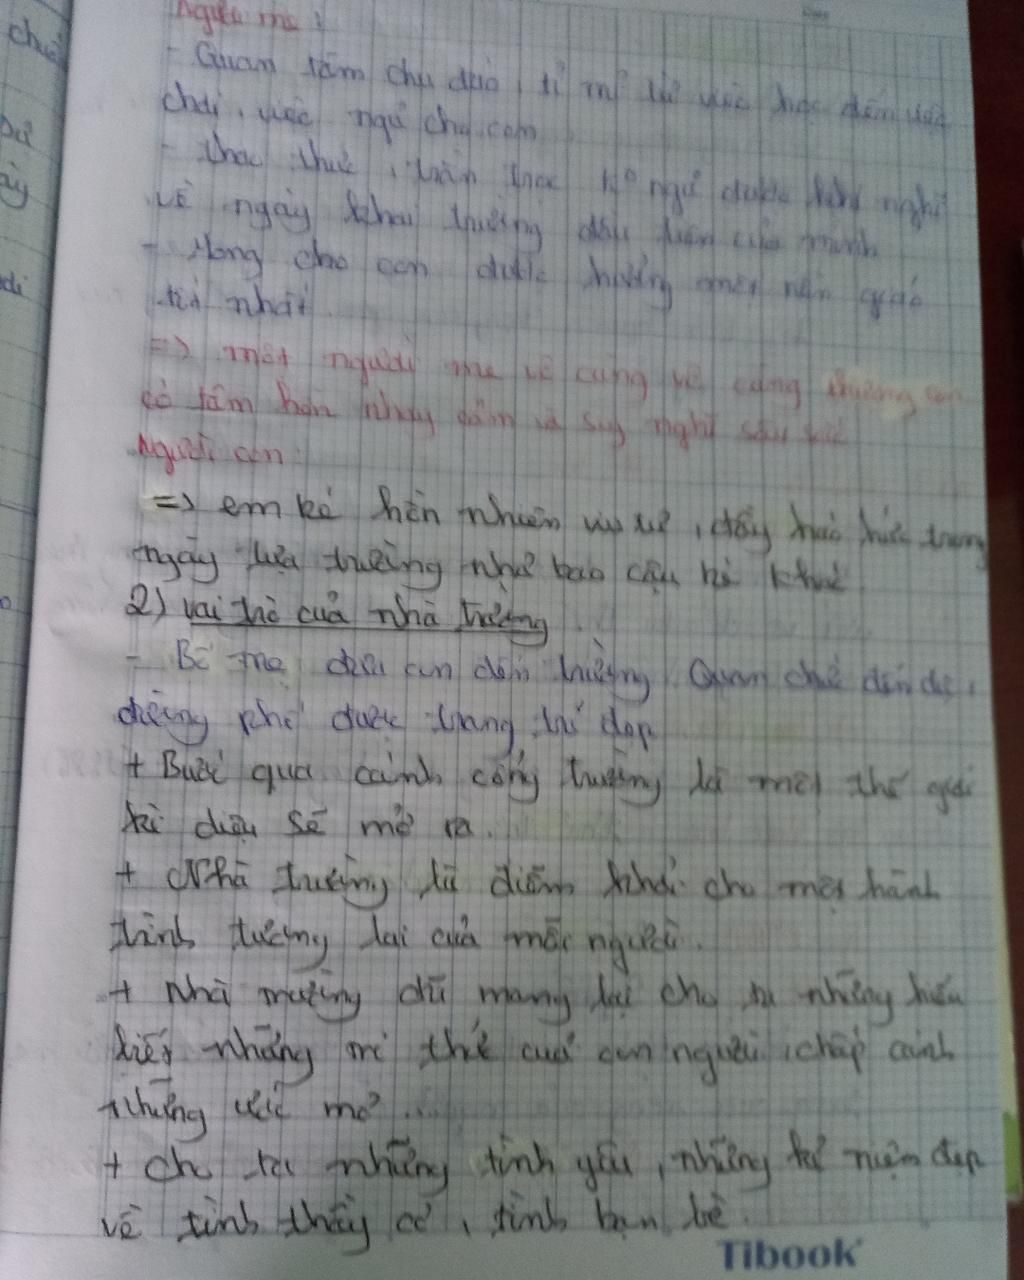 Người mẹ :
- Quan tâm chu đáo, tỉ mỉ từ việc học đến việc
chơi, việc ngủ cho con
- thao thức, trằn trọc ko ngủ được khi nghĩ
về ngày khai trường đầu tiên của mình
- Mong cho con được hưởng một nền giáo
tốt nhất
=> một người mẹ vô cùng vô cùng thương con
có tâm hồn nhạy cảm và suy nghĩ sâu sắc
Người con :
=> em bé hồn nhiên vui vẻ, đầy háo hức trong
ngày tựa trường như bao cậu bé khác
2) vai trò của nhà trường
- Bố mẹ đưa con đến trường. Quan chế
đường phố được trang trí đẹp
+ Bước qua cánh cổng trường là một thế giới
kì diệu sẽ mở ra.
+ Nhà trường là điểm khởi cho một hành
trình tương lai của mỗi người.
+ Nhà trường đã mang lại cho ta những hiểu
biết những tri thế của con người, chắp cánh
những ước mơ ...
+ cho ta những tình yêu, những kỉ niệm đẹp
về tình thầy cô, tình bạn bè.
Tibook
chuẩ
ày